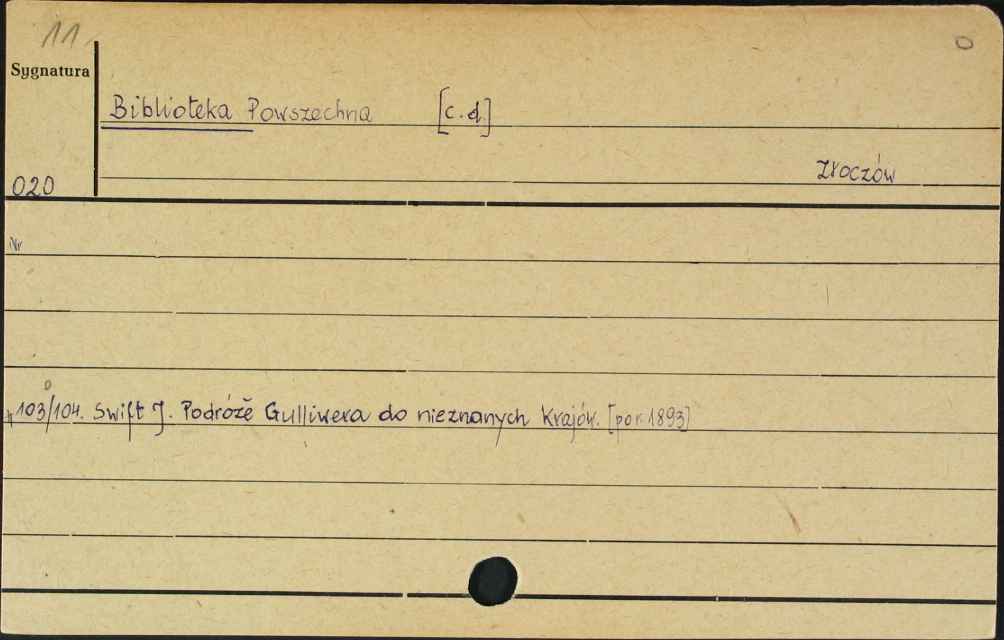 11
0
Sygnatura
Biblioteka Powszechna [c.d.]
Złoczów
020
Nr
103/104. Swift J. Podróże Gulliwera do nieznanych Krajów. [po r. 1893]